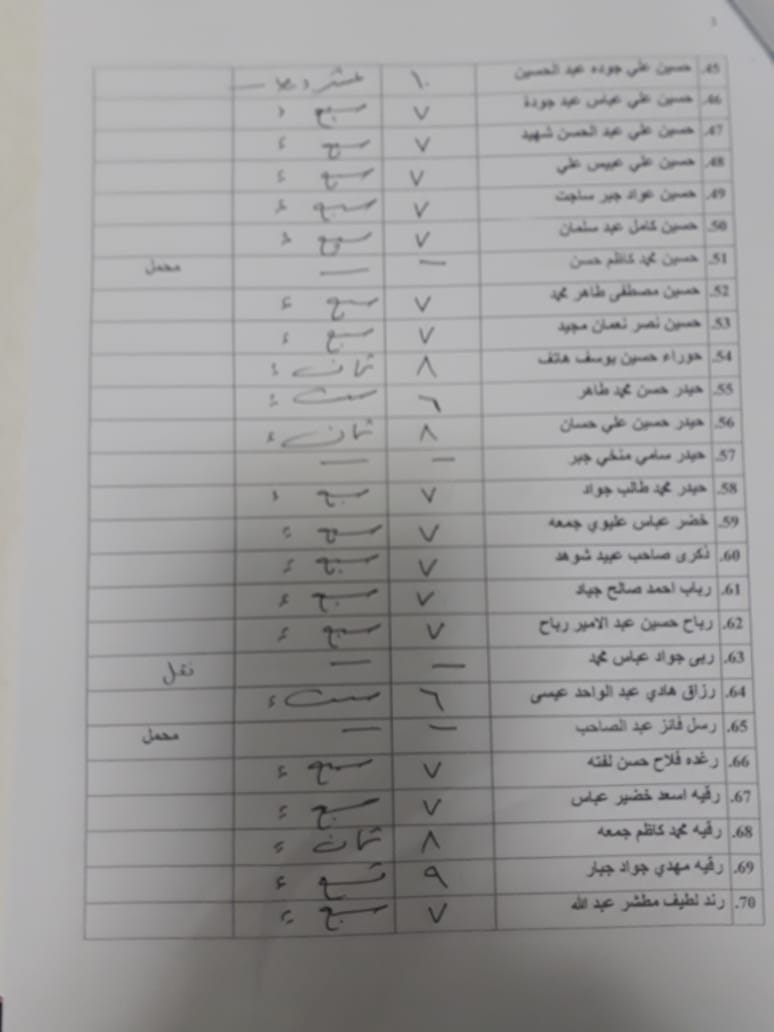 3
45. حسين علي جوده عبد الحسين ١٠ عشر درجات
46. حسين علي عباس عبد جودة ٧ سبع ء
47. حسين علي عبد الحسن شهيد ٧ سبع ء
48. حسين علي عبيس علي ٧ سبع ء
49. حسين عواد جبر ساجت ٧ سبع ء
50. حسين كامل عبد سلمان ٧ سبع ء
51. حسين محمد كاظم حسن — — محمل
52. حسين مصطفى طاهر محمد ٧ سبع ء
53. حسين نصر نعمان مجيد ٧ سبع ء
54. حوراء حسين يوسف هاتف ٨ ثمان ء
55. حيدر حسن محمد طاهر ٦ ست ء
56. حيدر حسين علي حسان ٨ ثمان ء
57. حيدر سامي منخي جبر — —
58. حيدر محمد طالب جواد ٧ سبع ء
59. خضر عباس عليوي جمعه ٧ سبع ء
60. ذكرى صاحب عبيد شوهد ٧ سبع ء
61. رباب احمد صالح جياد ٧ سبع ء
62. رباح حسين عبد الامير رباح ٧ سبع ء
63. ربى جواد عباس محمد — — نقل
64. رزاق هادي عبد الواحد عيسى ٦ ست ء
65. رسل فائز عبد الصاحب — — محمل
66. رغده فلاح حسن لفته ٧ سبع ء
67. رقيه اسعد خضير عباس ٧ سبع ء
68. رقيه محمد كاظم جمعه ٨ ثمان ء
69. رقيه مهدي جواد جبار ٩ تسع ء
70. رند لطيف مطشر عبد الله ٧ سبع ء